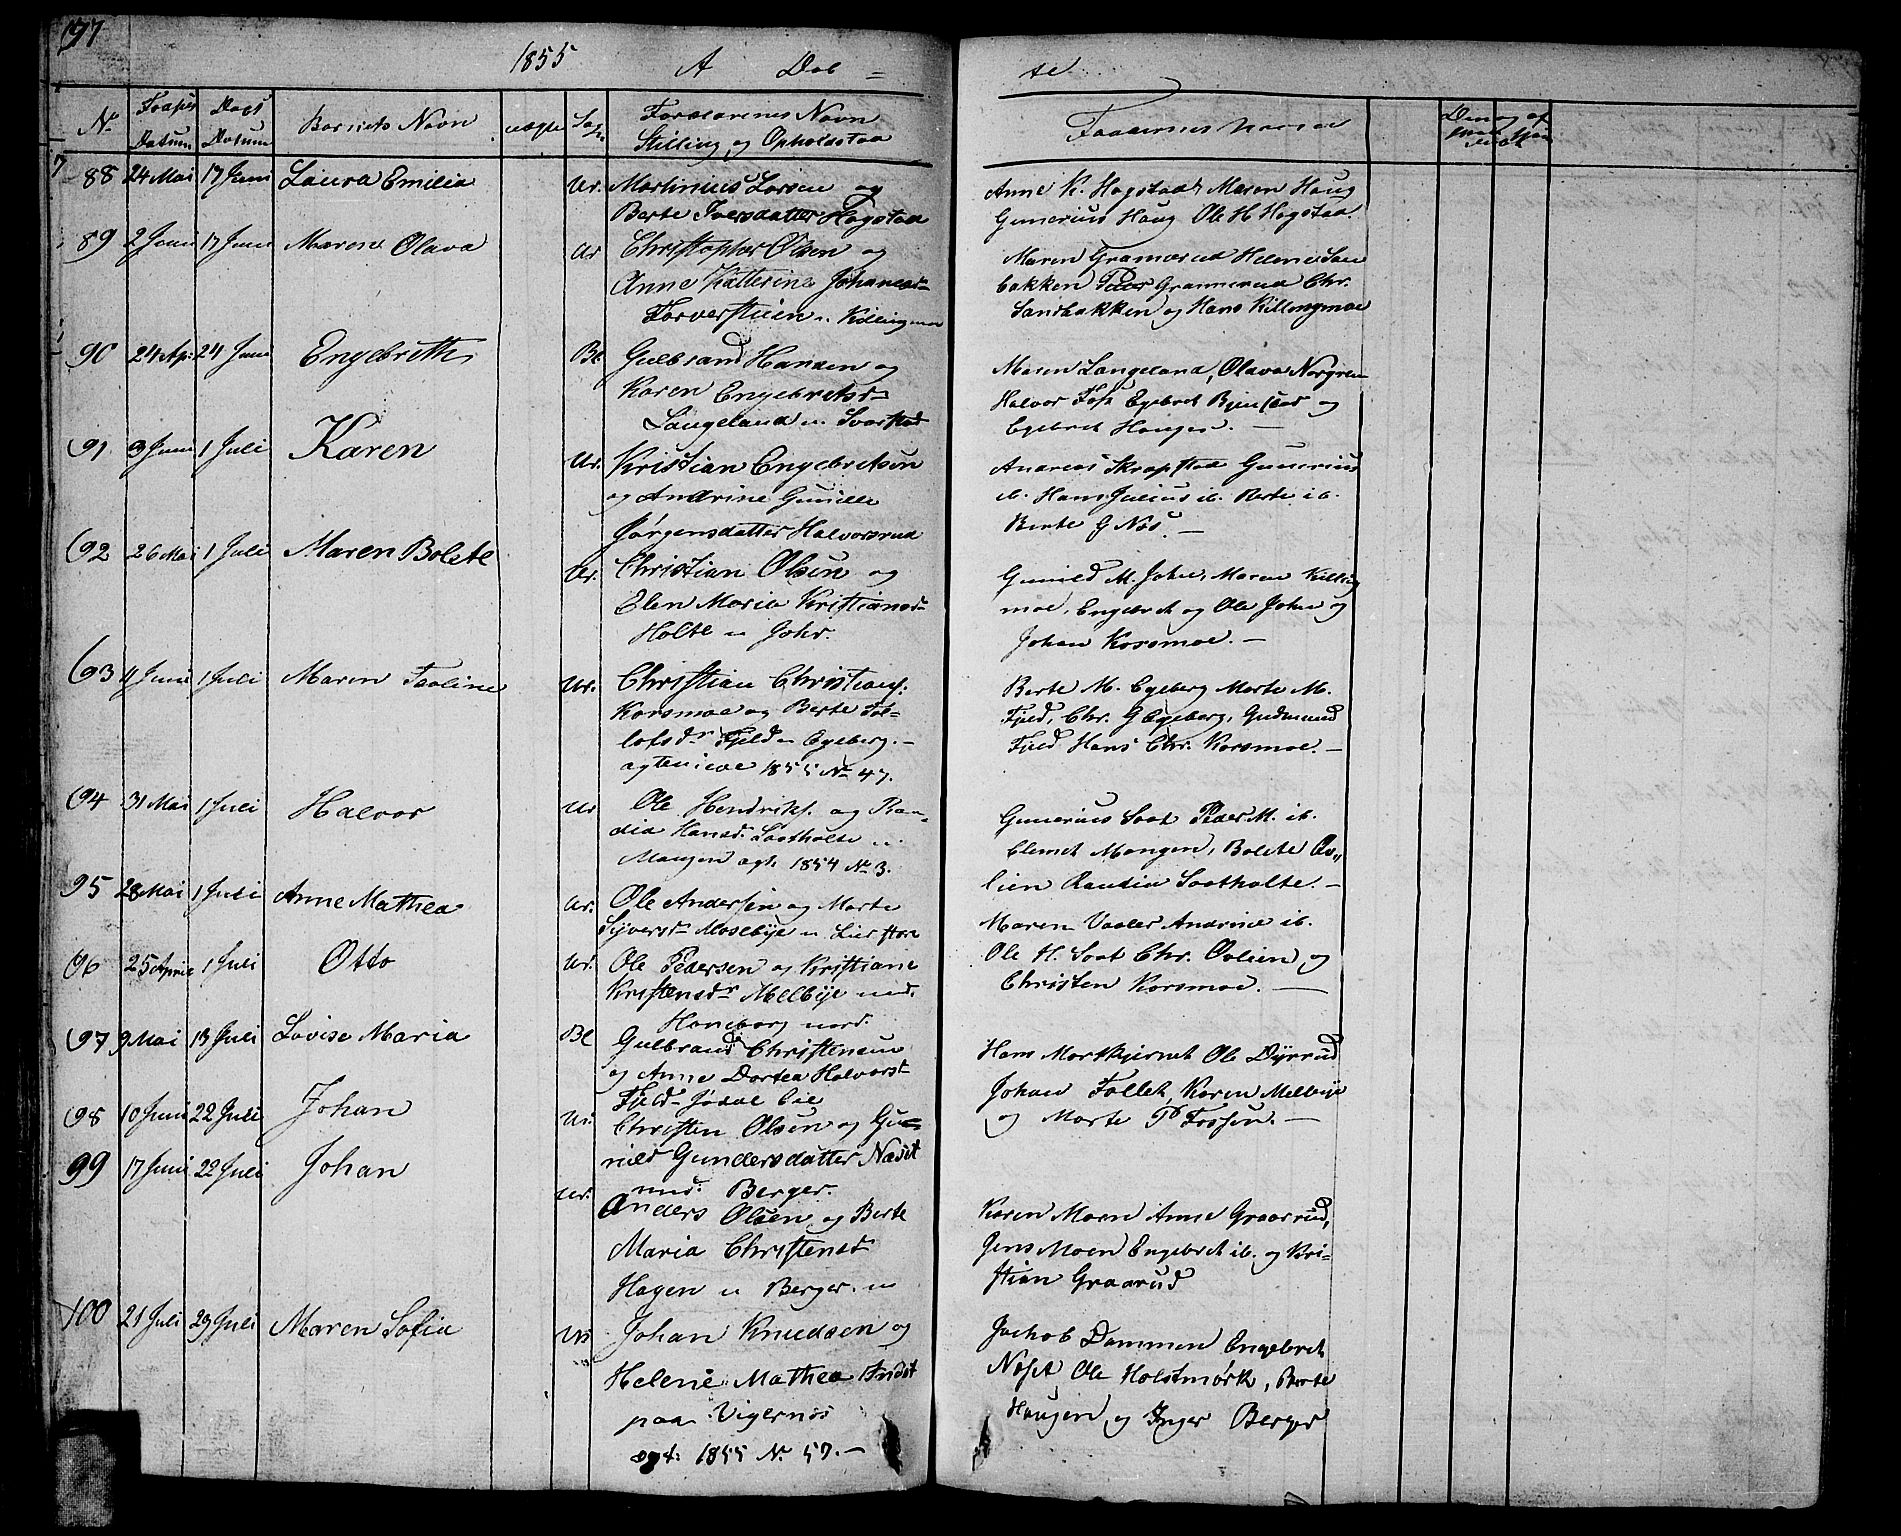 197
1855 A Døb = te
No Fødsels Datum Daabs Datum Barnets Navn uægte Sogn Forældrenes Navn Stilling og Opholdsted
Faddernes Navne
88 24 Mai 17 Juni Laura Emilia Ur. Martinius Larsen og
Berte Iversdatter Hogstad
Anne K. Hogstad Maren Haug
Gunerius Haug Ole H. Hogstad
89 2 Juni 17 Juni Maren Olava Ur Christopher Olsen og
Anne Katterine Johanesd
Torverstuen u. Kidlingmoe
Maren Gramerud Helene San
bakken Peder Grammerud Chr.
Sandbakken og Hans Killingmoe
90 24 Ap: 24 Juni Engebreth Bl Gulbrand Hansen og
Karen Engebretsd
Langeland u. Svarstad
Maren Langeland, Olava Norgren
Halvor Foss Egebret og
Egebret Hauger. —
91 3 Juni 1 Juli Karen Ur. Kristian Engebretsen
og Andrine Gunille
Jørgensdatter Halvorsrud
Andreas Skrapstad Gunerius
ib. Hans Julius ib. Berte ib.
Berte G Nes. —
92 26 Mai 1 Juli Maren Bolete Ur. Christian Olsen og
Elen Maria Kristiansd
Holte u Johr.
Gunild M. Johr, Maren Killing
moe, Engebret og Ole Johr og
Johan Korsmoe. —
93 4 Juni 1 Juli Maren Paoline Ur. Christian Christians:
Korsmoe og Berte Tol-
lofsdr Fjeld u Egeberg. —
agteviede 1855 No 47.
Berte M. Egeberg Marte M.
Fjeld, Chr. G Egeberg, Gudmund
Fjeld Hans Chr. Korsmoe. —
94 31 Mai 1 Juli Halvor Ur Ole Hendriks. og Ran-
dia Hansd. Saatholte u.
Mangen agt. 1854 No 3.
Gunerius Saat Peder M. ib.
Clemet Mangen, Bolete Ov„
lien Randia Saatholte. —
95 28 Mai 1 Juli Anne Mathea Ur. Ole Andersen og Marte
Syversd Mosebye u Lierstøen
Maren Vaaler Andrine ib.
Ole H. Saat Chr. Ovlien og
Christen Korsmoe. —
96 25 April 1 Juli Otto Ur. Ole Pedersen og Kristiane
Kristensdr Melbye und.
Haneborg nord.
97 9 Mai 13 Juli Lovise Maria Bl Gulbrand Christensen
og Anne Dortea Halvorsd
Fjeld
Hans Morkkjernet Ole Dyrrud
Johan Follet, Karen Melbye
og Marte P Fossen. —
98 10 Juni 22 Juli Johan Ur. Christen Olsen og Gu=
nild Gundersdatter Næset
und: Berger.
99 17 Juni 22 Juli Johan Ur. Anders Olsen og Berte
Maria Christensd
Hagen u Berger. u
Karen Moen Anne Graarud,
Jens Moen Engebret ib. og Kri-
stian Graarud
100 21 Juli 29 Juli Maren Sofia Ur Johan Knudsen og
Helene Mathea Indst
paa Vigernæs
agt: 1855 No 57. —
Jachob Dammen Engebret
Næset Ole Holstmørk, Berte
Haugen, og Inger Berger